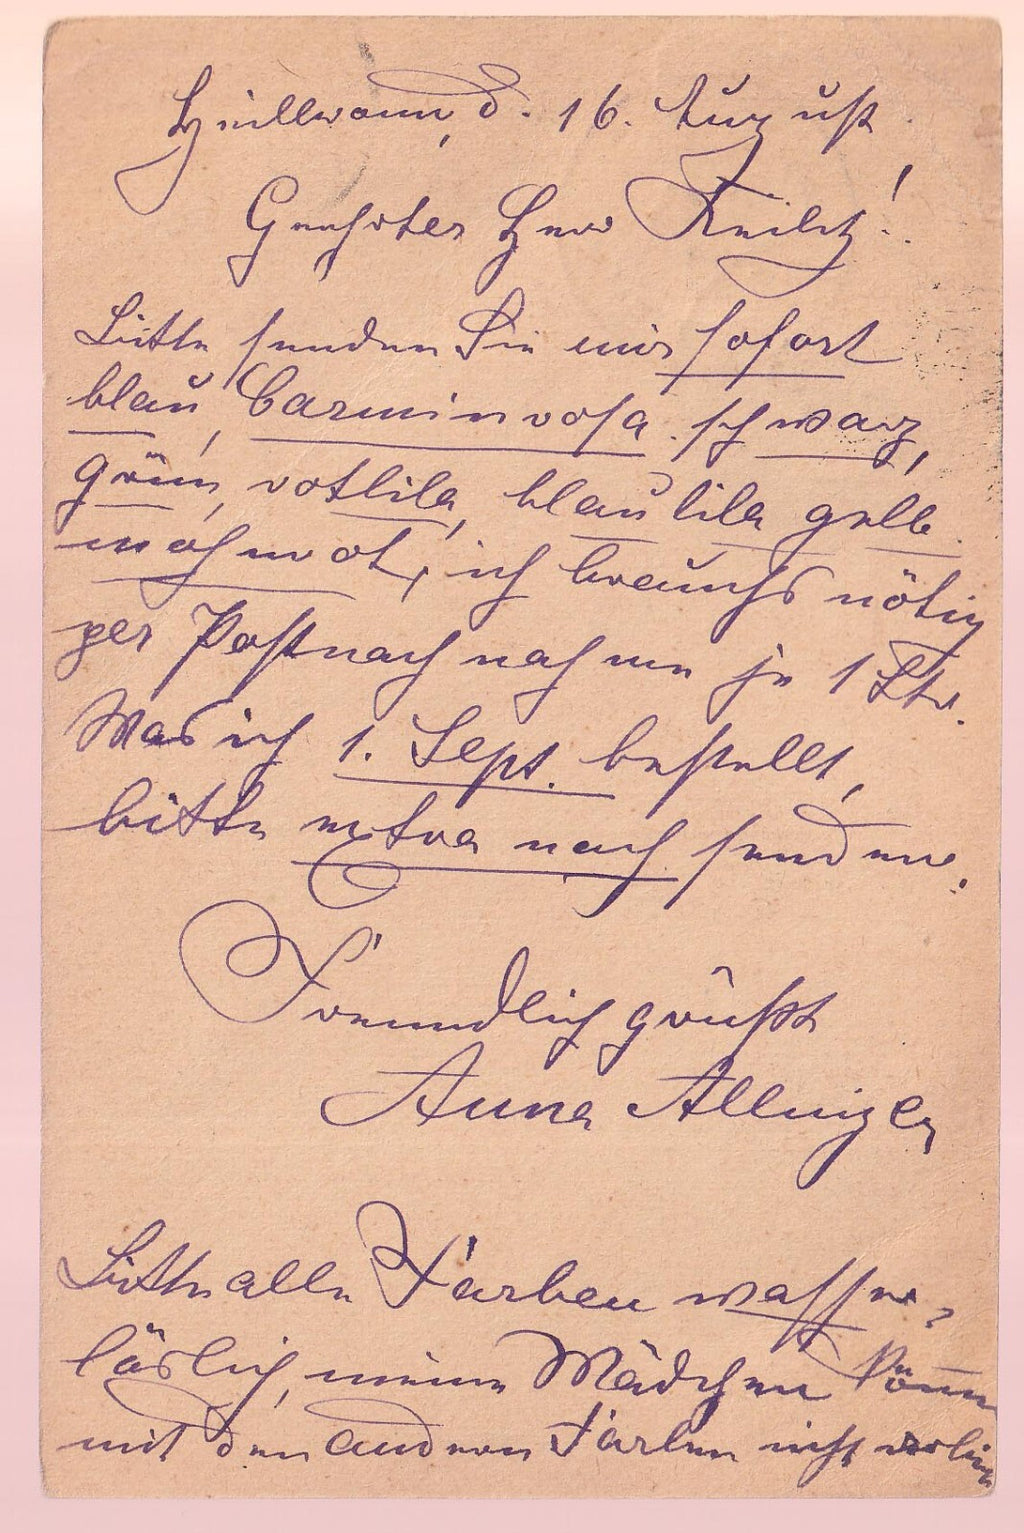 d. 16. August.
Geehrter Herr
Bitte senden Sie mir sofort
blau, Carminrosa. schwarz,
grün, rotlila, blaulila gelb.
mohnrot, ich brauchs nötig
per Postnachnahme je 1
Was ich 1. Sept. bestellt,
bitte extra nach senden.
Freundlich grüßt
Anna Allinger
Bitte alle Farben wasser-
löslich, meine Mädchen könn
mit den anderen Farben nicht